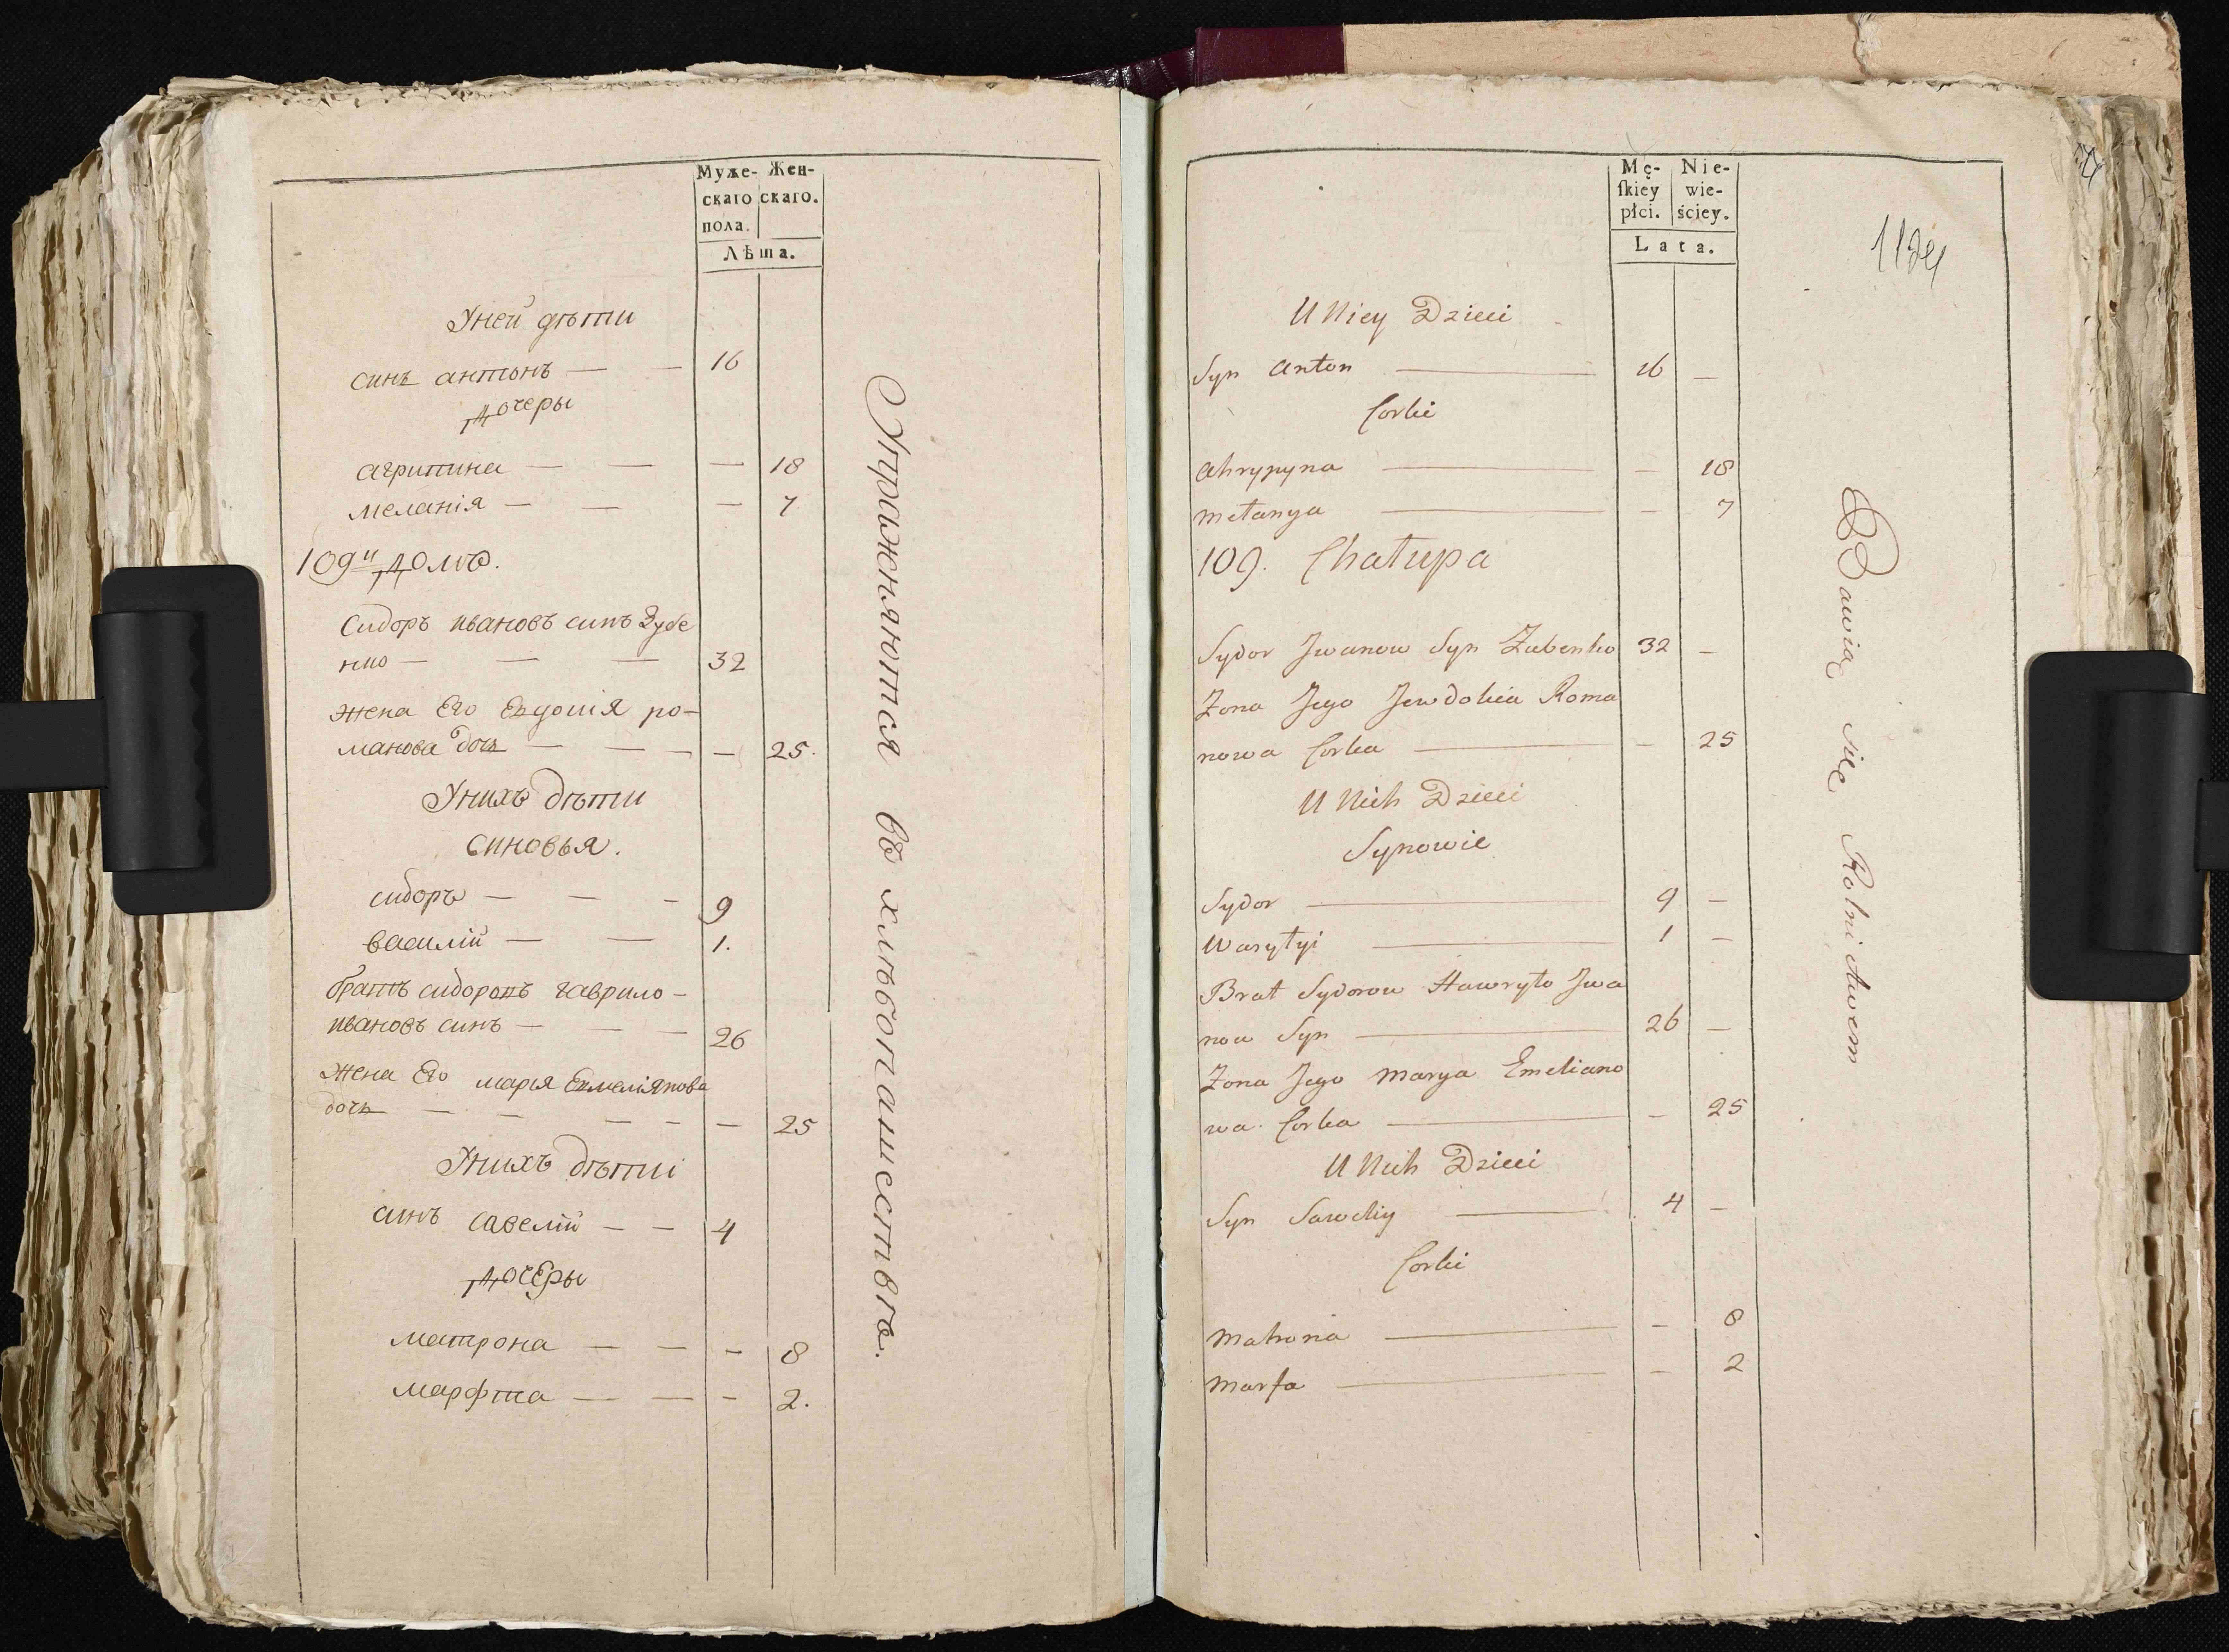 Муже- Жен-
скаго скаго.
пола.
Лѣта.
Уней дѣти
синъ антонъ — — 16
Дочеры
агрипина — — — 18
меланія — — — 7
109й Домъ.
Сидоръ ивановъ синъ Зубе
нко — — — 32
жена Его Евдокія ро-
манова дочь — — — — 25.
Унихъ дѣти
синовья.
сидоръ — — - 9
василій — — 1.
братъ сидоровъ гаврило-
ивановъ синъ — — — 26
жена Его марія Емеліянова
дочь — — — — — 25
Унихъ дѣти
синъ савелій — — 4
Дочеры
матрона — — - 8
марфта — — - 2.
Упражняются въ хлѣбопашествѣ.
Mę- Nie-
skiey wie-
płci. ściey.
Lata.
1124
U Niey Dzieci
Syn Anton — 16 —
Corki
Ahrypyna — — 18
Mełanya — — 7
109. Chałupa
Sydor Jwanow Syn Zubenko 32 —
Zona Jego Jewdokia Roma
nowa Corka — — 25
U Nich Dzieci
Synowie
Sydor — 9 —
Wasyłyi — 1 —
Brat Sydorow Hawryło Jwa
now Syn — 26 —
Zona Jego Marya Emeliano
wa Corka — — 25
U Nich Dzieci
Syn Saweliy — 4 —
Corki
Matrona — — 8
Marfa — — 2
Bawią się Rolnictwem